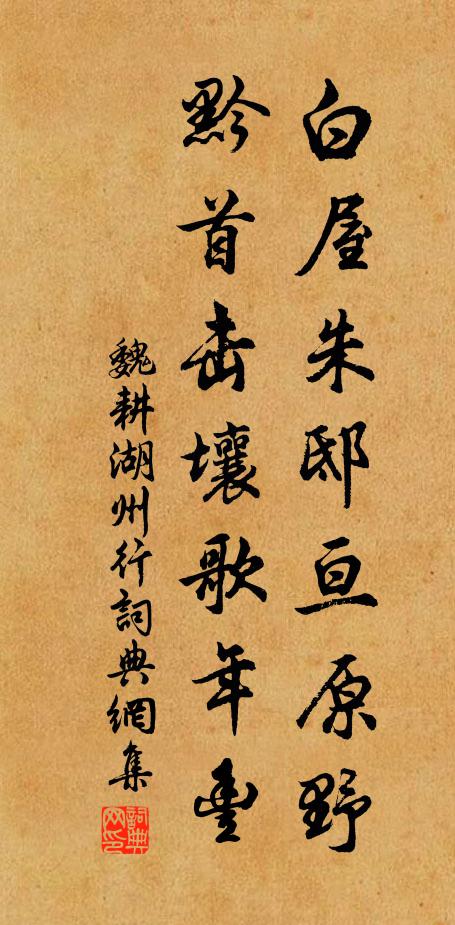 白屋朱邸亘原野
黔首击壤歌年豊
魏耕湖州行詞典網集
詞典網印